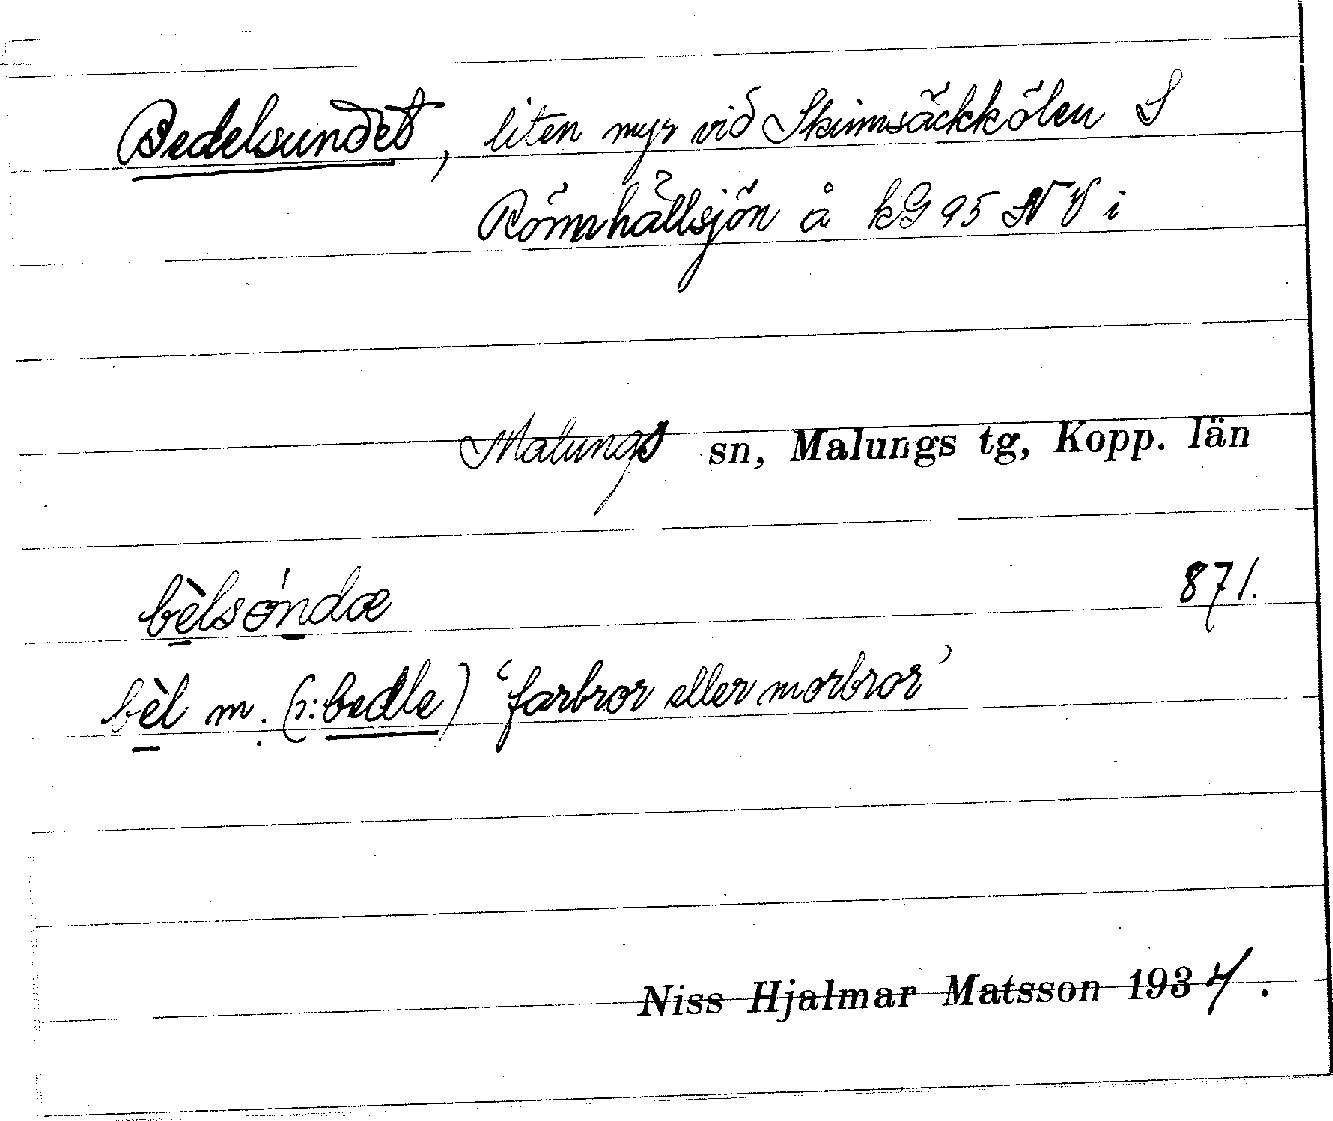 Bedelsundet, liten myr vid Skinnsäckkölen S
Römhällsjön å kG 95 NV i
Malungs sn, Malungs tg, Kopp. län
bèlsóndæ 871.
bèl m. (ɔ: bedle) ‘farbror eller morbror’
Niss Hjalmar Matsson 1934.